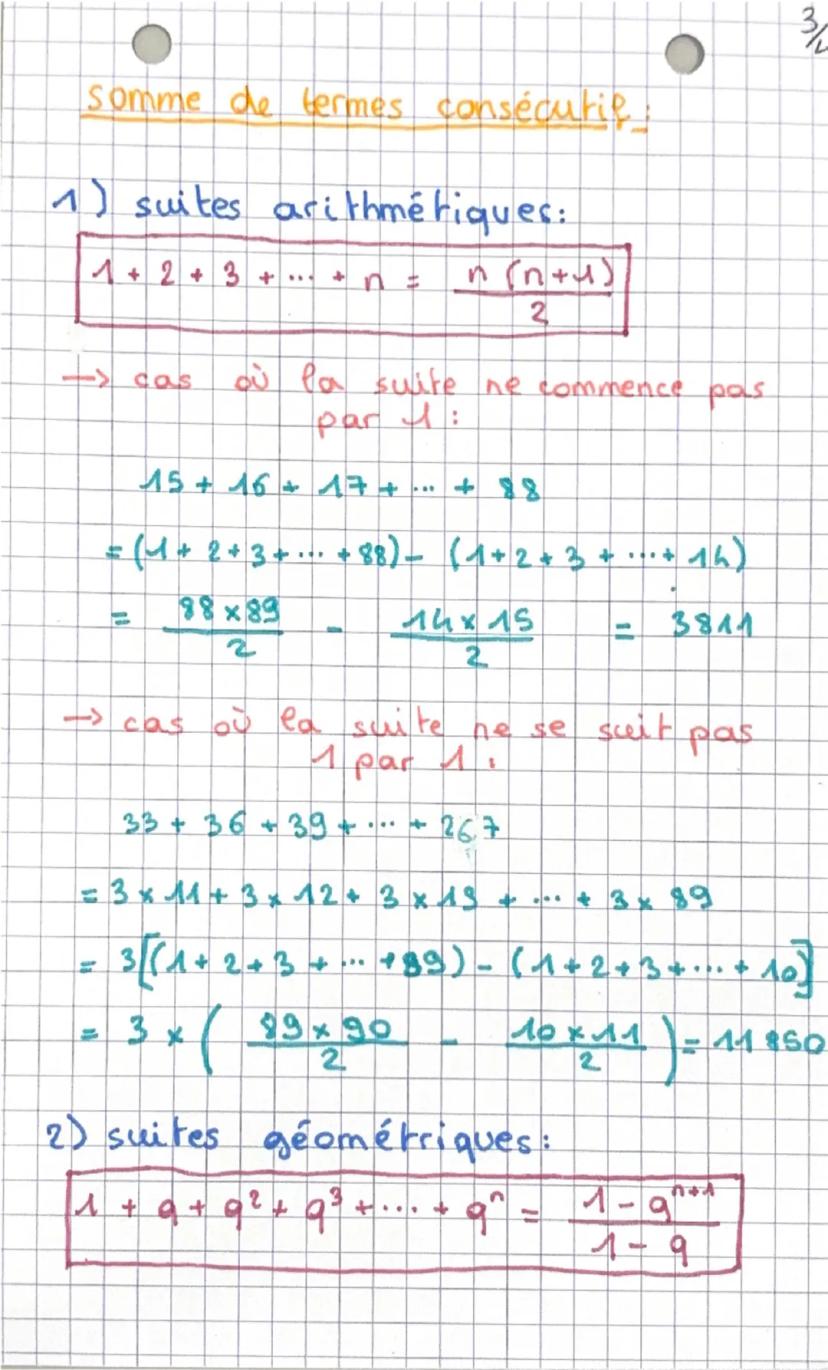 3/4
somme de termes consécutif :
1) suites arithmétiques :
1 + 2 + 3 + ... + n = n (n+1) / 2
→ cas où la suite ne commence pas
par 1 :
15 + 16 + 17 + ... + 88
= (1 + 2 + 3 + ... + 88) - (1 + 2 + 3 + ... + 14)
= 88 × 89 / 2 - 14 × 15 / 2 = 3811
→ cas où la suite ne se suit pas
1 par 1 :
33 + 36 + 39 + ... + 267
= 3 × 11 + 3 × 12 + 3 × 13 + ... + 3 × 89
= 3[(1 + 2 + 3 + ... + 89) - (1 + 2 + 3 + ... + 10)]
= 3 × ( 89 × 90 / 2 - 10 × 11 / 2 ) = 11850
2) suites géométriques :
1 + q + q² + q³ + ... + qⁿ = 1 - qⁿ⁺¹ / 1 - q